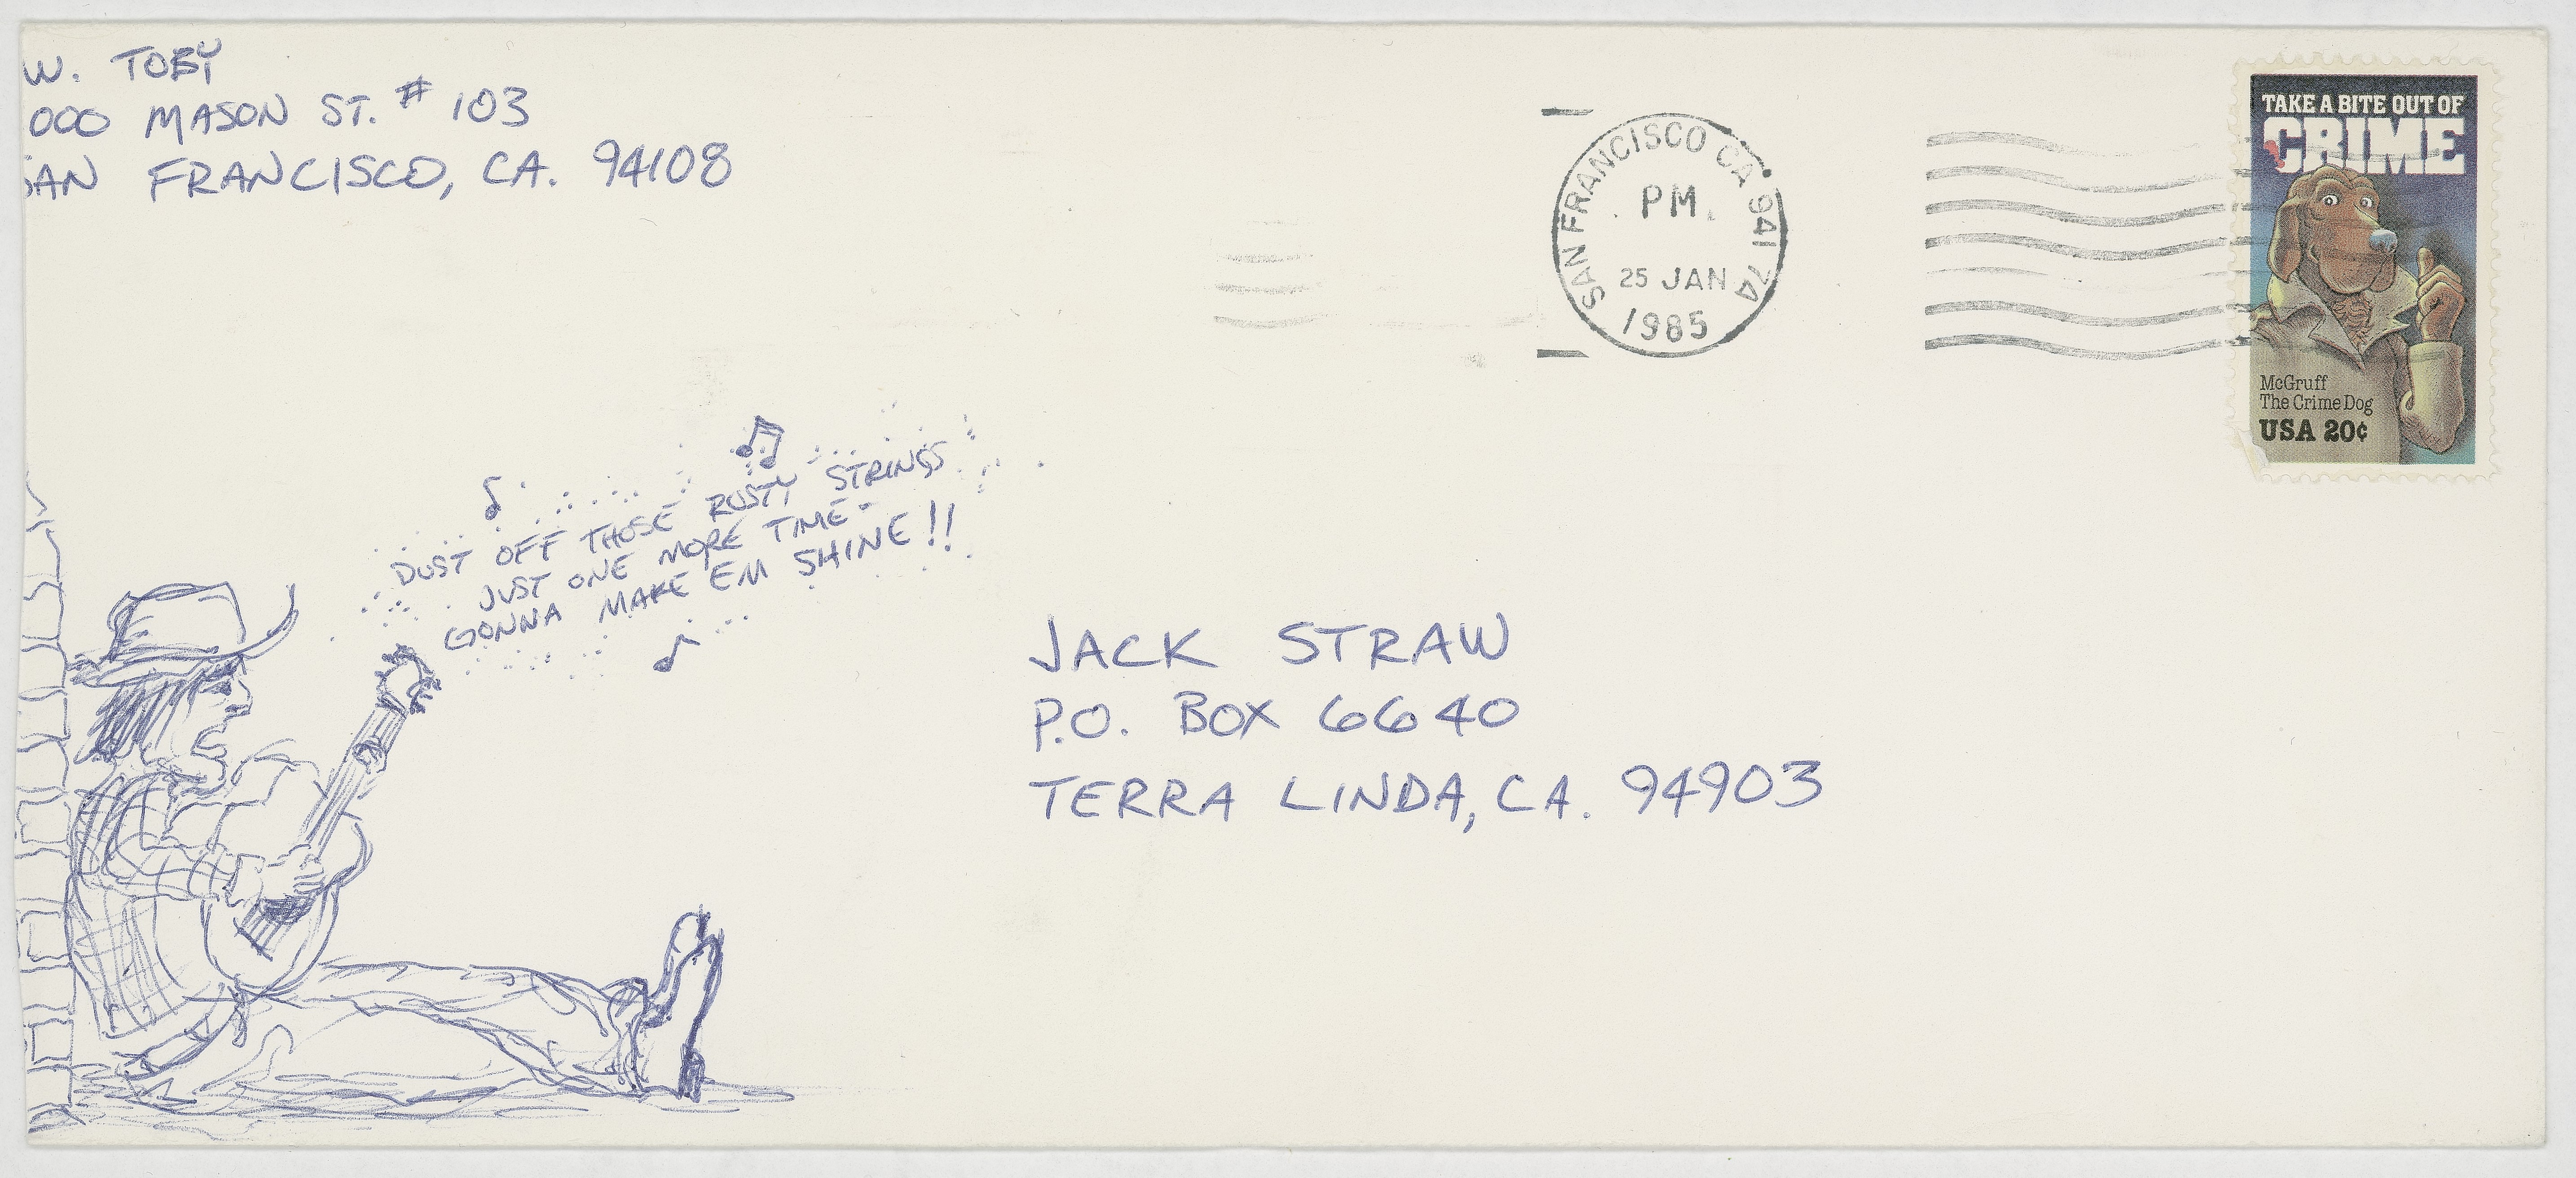 W. TOBY
000 MASON ST. # 103
SAN FRANCISCO, CA. 94108
SAN FRANCISCO CA 941 74
PM
25 JAN
1985
TAKE A BITE OUT OF
CRIME
McGruff
The Crime Dog
USA 20¢
DUST OFF THOSE RUSTY STRINGS
JUST ONE MORE TIME-
GONNA MAKE EM SHINE!!
JACK STRAW
P.O. BOX 6640
TERRA LINDA, CA. 94903